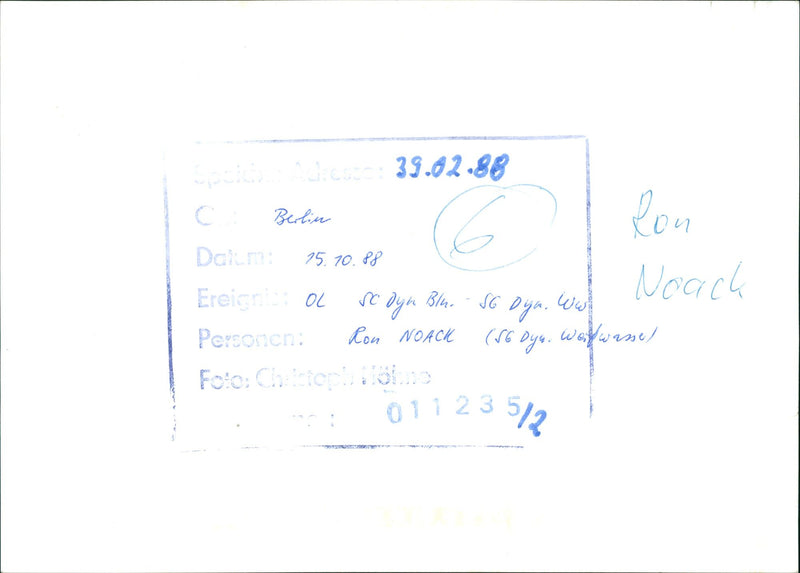 Adresse: 39.02.88
Berlin
6
Datum: 15.10.88
Ereignis: OL SC Dyn Bln. - SG Dyn. Ww
Personen: Ron NOACK (SG Dyn. Weißwasser)
Foto: Christoph Höhne
011235/2
Ron
Noack